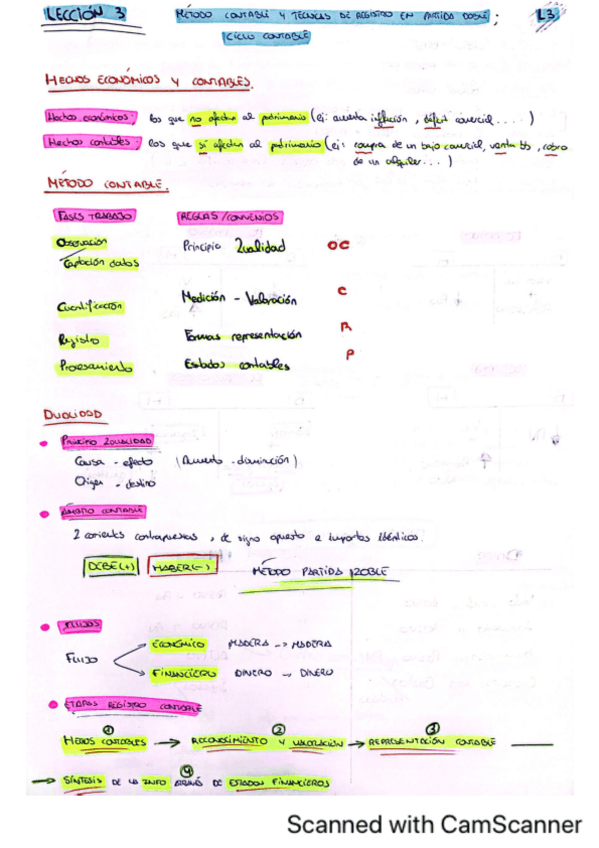 LECCIÓN 3 MÉTODO CONTABLE Y TÉCNICAS DE REGISTRO EN PARTIDA DOBLE; L3
CICLO CONTABLE
HECHOS ECONÓMICOS Y CONTABLES.
Hechos económicos; los que no afectan al patrimonio (ej: aumenta inflación, déficit comercial....)
Hechos contables; los que sí afectan al patrimonio (ej: compra de un bajo comercial, venta bs, cobro
de un alquiler...)
MÉTODO CONTABLE.
FASES TRABAJO REGLAS/CONVENIOS
Observación Principio Dualidad OC
Captación datos
Cuantificación Medición - Valoración C
Registro Formas representación R
Procesamiento Estados contables P
DUALIDAD
PRINCIPIO DUALIDAD
Causa - efecto (Aumento - disminución)
Origen - destino
ÁMBITO CONTABLE
2 corrientes contrapuestas, de signo opuesto e importes idénticos.
DEBE(+) HABER(-) MÉTODO PARTIDA DOBLE
FLUJOS
FLUJO
ECONÓMICO MADERA -> MADERA
FINANCIERO DINERO -> DINERO
ETAPAS REGISTRO CONTABLE
① ② ③
HECHOS CONTABLES → RECONOCIMIENTO Y VALORACIÓN → REPRESENTACIÓN CONTABLE
④
→ SÍNTESIS DE LA INFO A TRAVÉS DE ESTADOS FINANCIEROS
Scanned with CamScanner